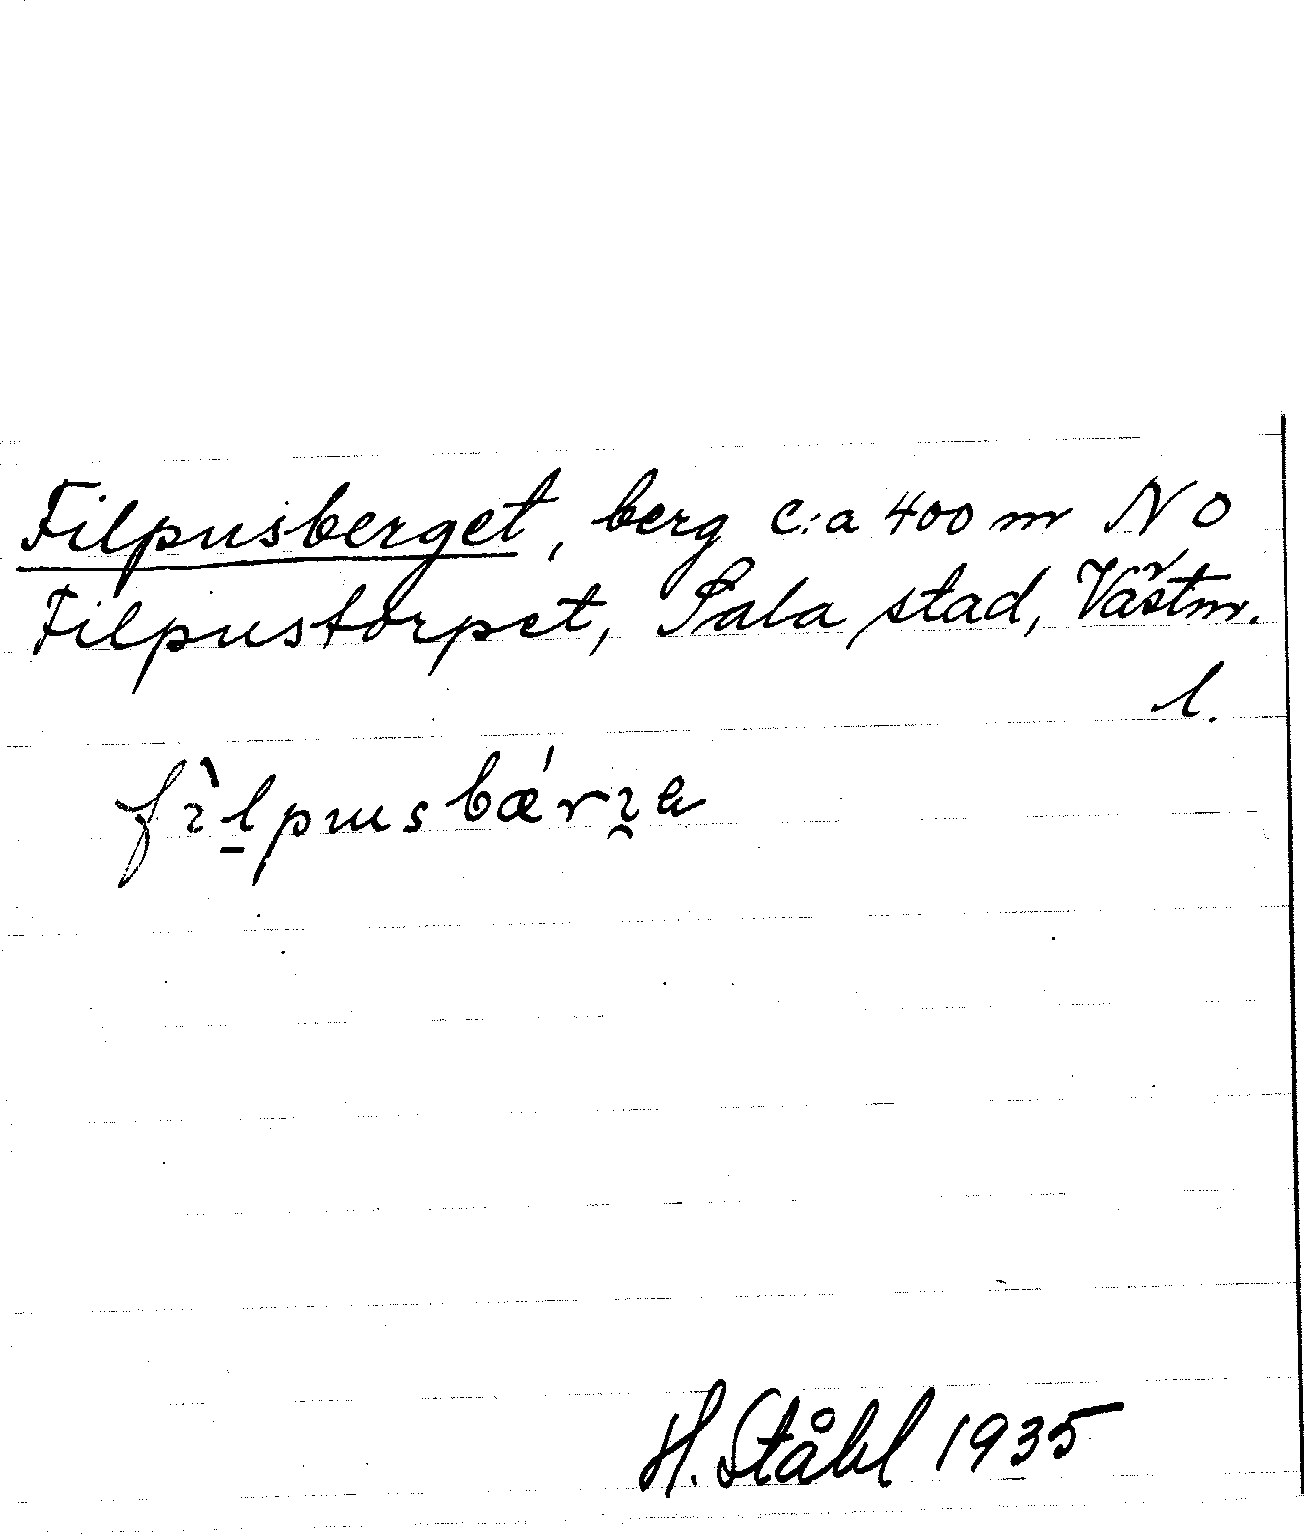 Filpusberget, berg c:a 400 m NO
Filpustorpet, Sala stad, Västm.
l.
H. Ståhl 1935